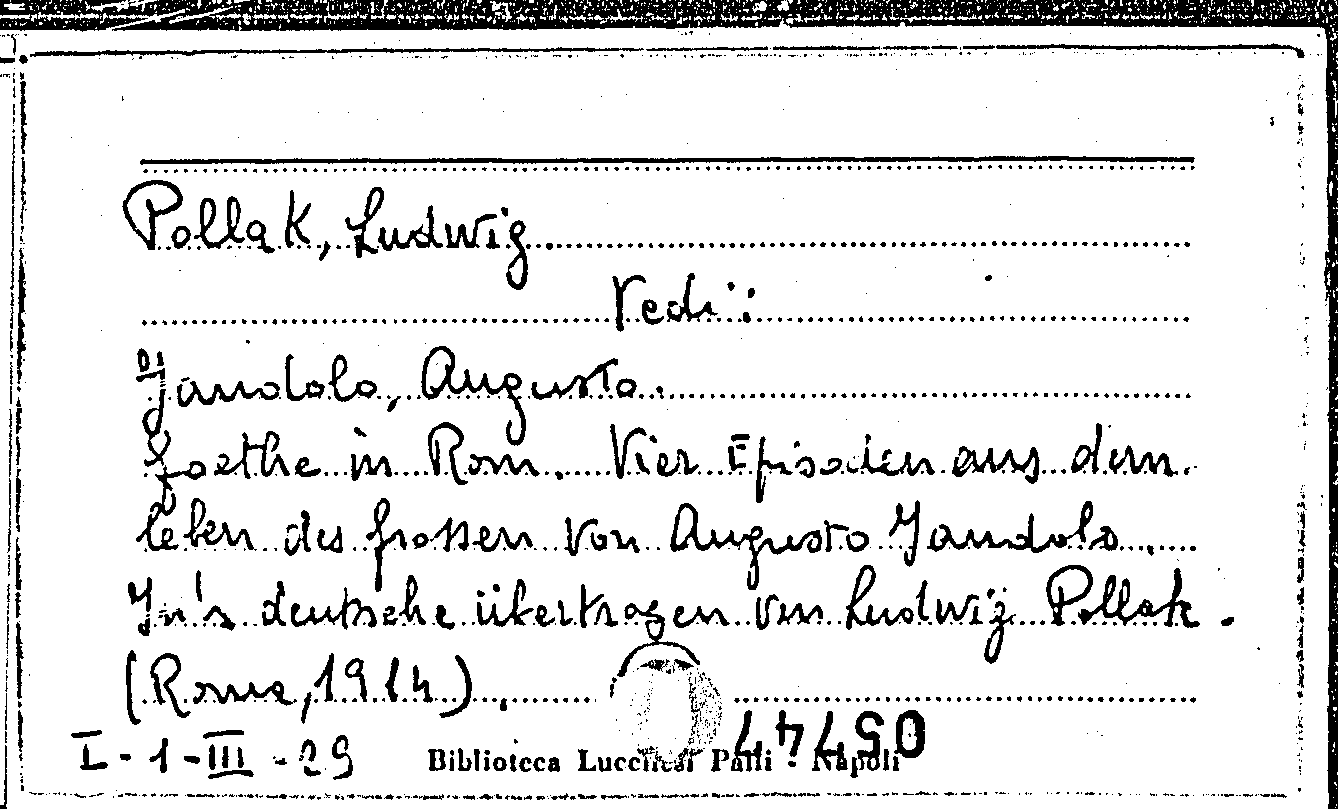 Pollak, Ludwig.
Vedi:
Jandolo, Augusto.
Goethe in Rom. Vier Episoden aus dem
leben des grossen von Augusto Jandolo.
In's deutsche übertragen von Ludwig Pollak.
(Roma, 1914).
05747
I-1-III-29
Biblioteca Lucchesi Palli - Napoli